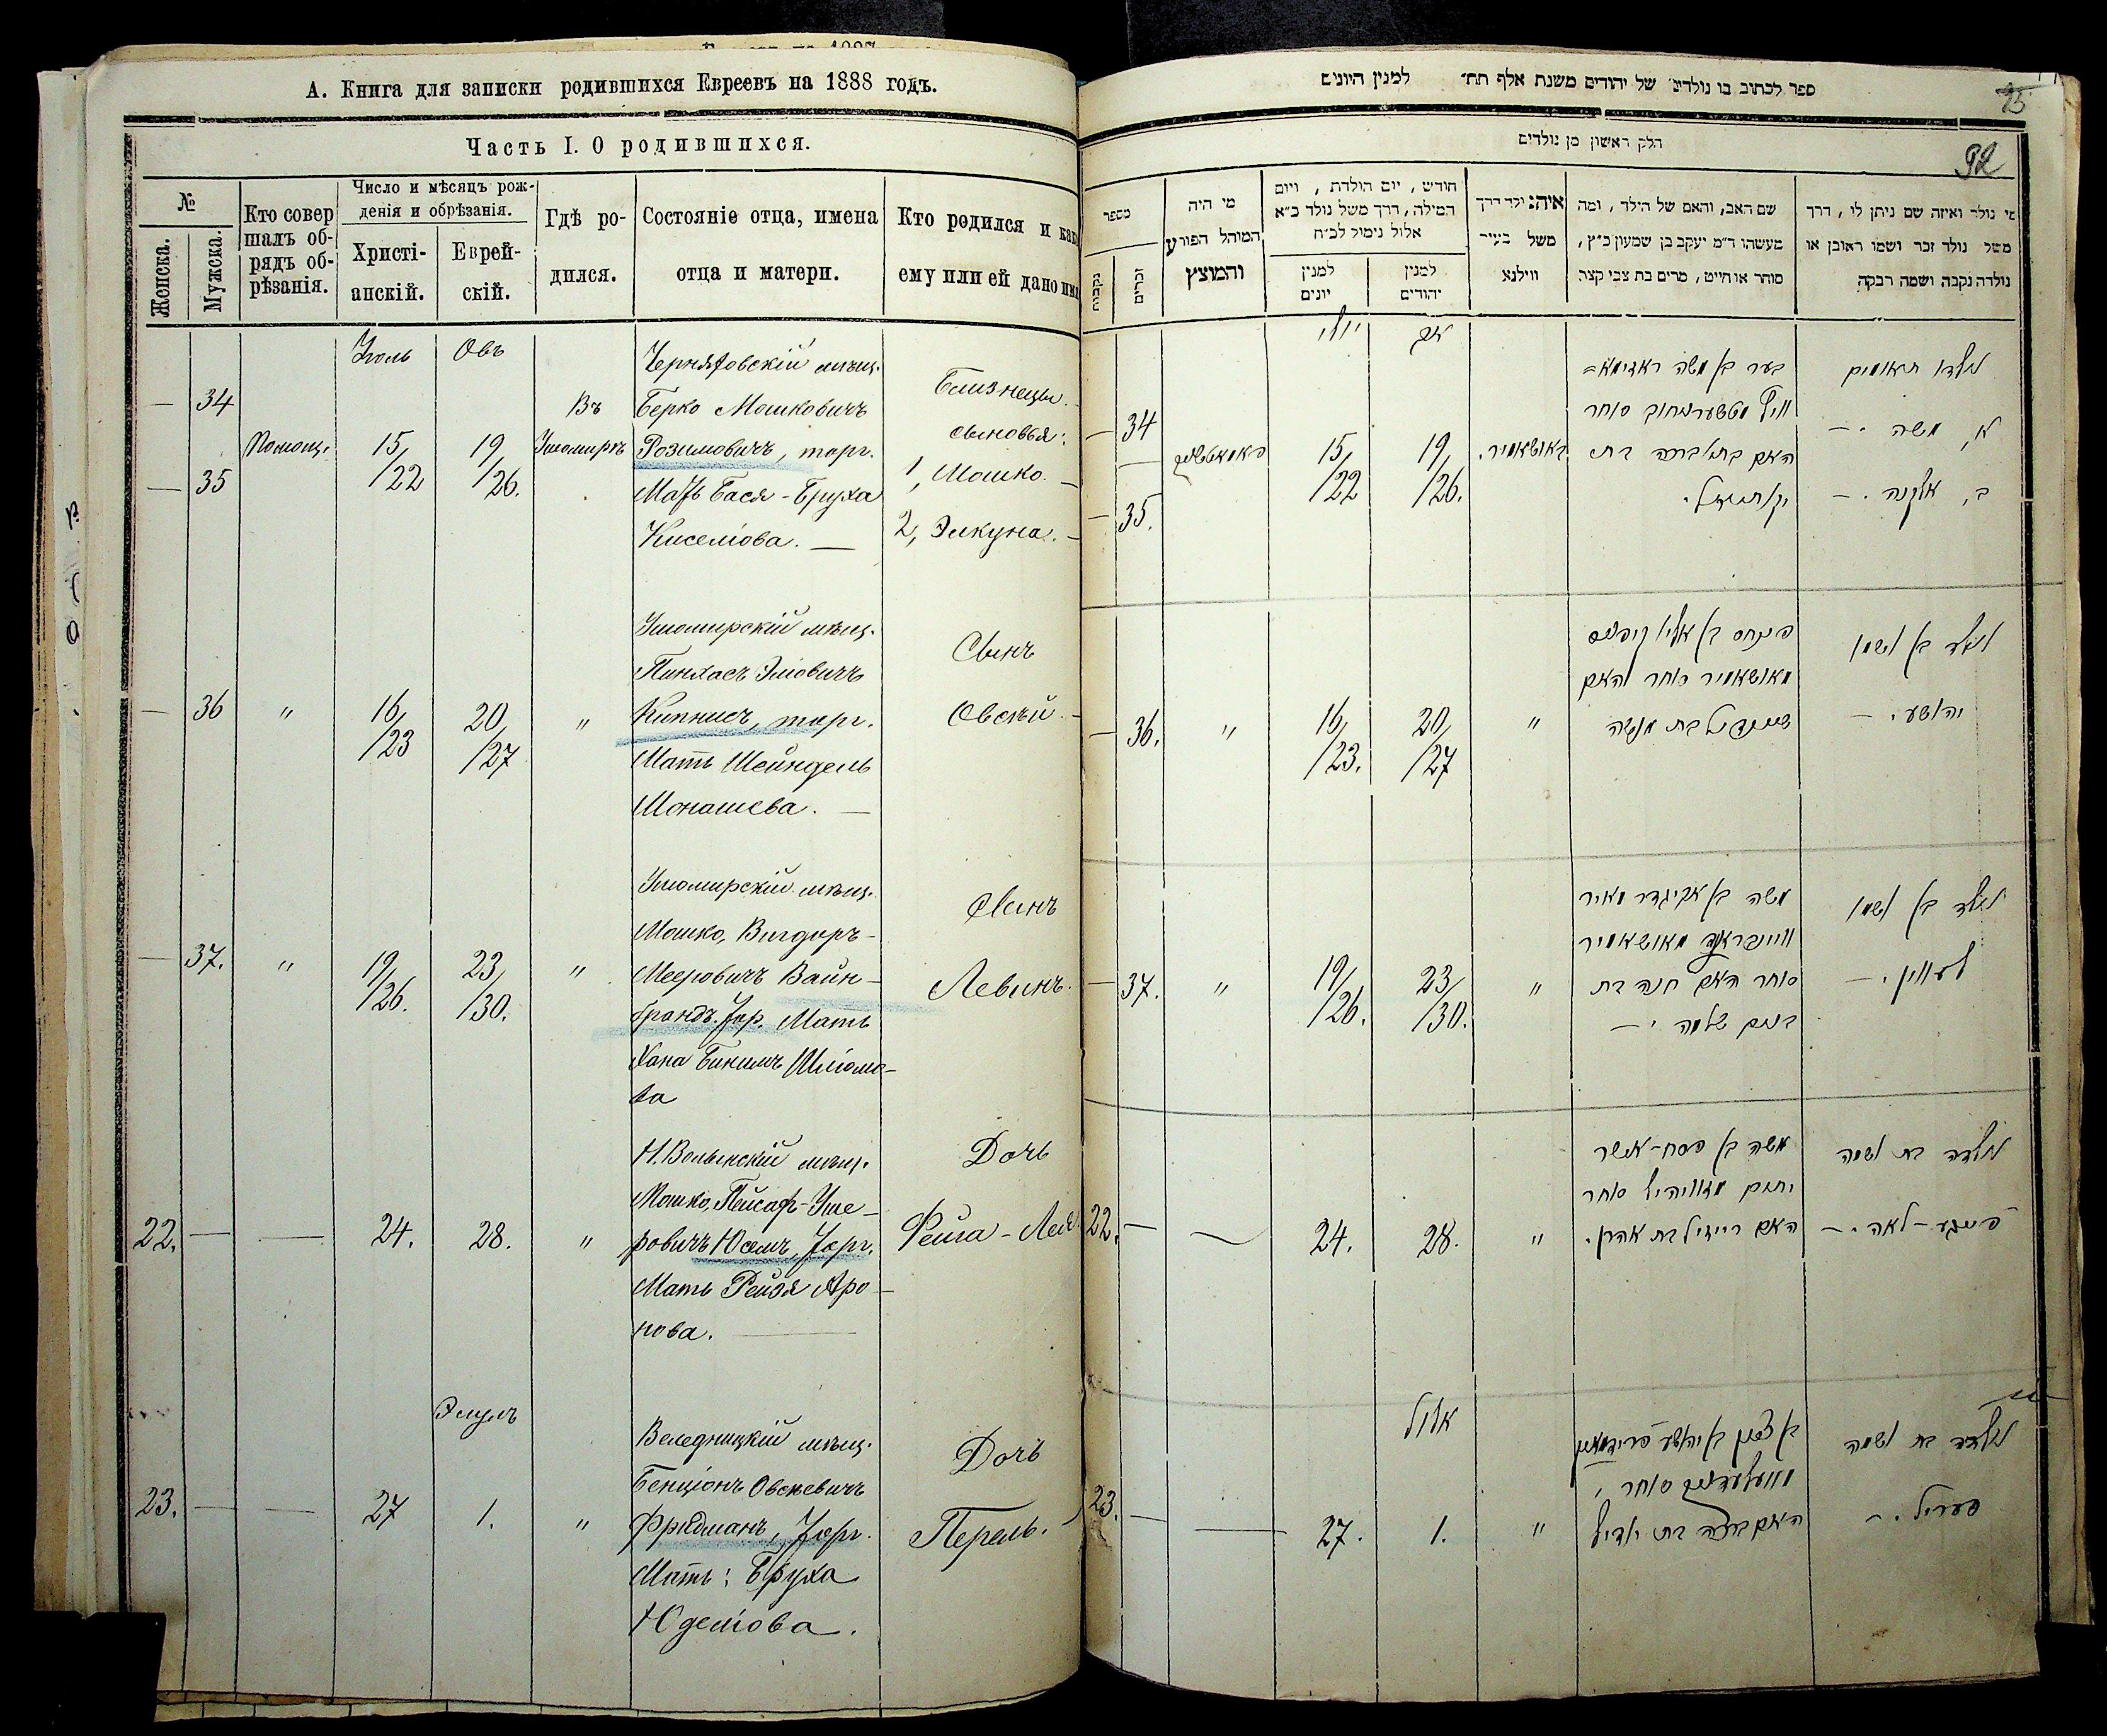 А. Книга для записки родившихся Евреевъ на 1888 годъ.
Часть I. О родившихся.
№
Женска.
Мужска.
Кто совер
шалъ об-
рядъ об-
рѣзанія.
Число и мѣсяцъ рож-
денія и обрѣзанія.
Христі-
анскій.
Еврей-
скій.
Гдѣ ро-
дился.
Состояніе отца, имена
отца и матери.
Кто родился и как
ему или ей дано имя
Іюль
Овъ
— 34
— 35
15/
/22
19/
/26.
Въ
Ушомирѣ
Черняховскій мѣщ.
Берко Мошковичъ
Розимовичъ, торг.
Мать Бася-Бруха
Киселіова. —
Близнецы.
сыновья:
1, Мошко. —
2, Элкуна. —
— 36
"
16/
/23
20/
/27
"
Ушомирскій мѣщ.
Пинхасъ Эліовичъ
Кипнисъ, торг.
Мать Шейндель
Монашева. —
Сынъ
Овсѣй. —
— 37.
"
19/
/26.
23/
/30.
"
Ушомирскій мѣщ.
Мошко, Вигдоръ-
Мееровичъ Вайн-
брандъ. Тор. Мать
Хана Бинимъ Шліомо-
ва
Сынъ
Левинъ.
22. —
—
24.
28.
"
Н. Волынскій мѣщ.
Мошко, Пейсах-Уше-
ровичъ Юсимъ, Торг.
Мать Рейзя Аро-
нова. —
Дочь
Фейга-Лея.
Элулъ
23. —
—
27
1.
"
Веледницкій мѣщ.
Бенціонъ Овсѣевичъ
Фридманъ, Торг.
Мать: Бруха
Юделіова.
Дочь
Перель.
ספר לכתוב בו נולדים של יהודים משנת אלף תת׳ למנין היונים
25
חלק ראשון מן נולדים
92
מספר
נקבות
זכרים
מי היה
המוהל הפורע
והמוצץ
חודש, יום הולדת, ויום
המילה, דרך משל נולד כ״א
אלול נימול לכ״ח
למנין
יונים
למנין
יהודים
איה: ילד דרך
משל בעיר
ווילנא
שם האב, והאם של הילד, ומה
מעשהו ד״מ יעקב בן שמעון כ״ץ,
סוחר או חייט, מרים בת צבי קצר.
מי נולד ואיזה שם ניתן לו, דרך
משל נולד זכר ושמו ראובן או
נולדה נקבה ושמה רבקה
יולי
אב
— 34
— 35.
15/
/22
19/
/26.
באושאמיר.
בער בן משה
סוחר
האם
יקותיאל.
נולדו תאומים
א, משה. —
ב, אלקנה. —
— 36.
"
16/
/23.
20/
/27
"
פינחס בן אליו קיפניס
מאושאמיר סוחר והאם
שיינדיל בת מנשה
נולד בן ושמו
יהושע. —
— 37.
"
19/
/26.
23/
/30.
"
משה בן אביגדר מאיר
וויינבראנד מאושאמיר
סוחר האם חנה בת
בנים שלמה. —
נולד בן ושמו
לעווין. —
22. —
24.
28.
"
משה בן פסח-אשר
סוחר
האם רייזיל בת אהרן.
נולדה בת ושמה
פייגע-לאה. —
אלול
23. —
—
27.
1.
"
בן ציון בן יהושע פרידמאן
סוחר,
האם ברכה בת יודיל
נולדה בת ושמה
פעריל. —